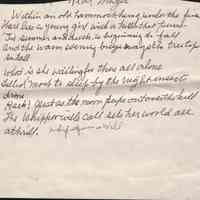 Within an old hammock hung under the pine
Here lies a young girl with a
Tis summer and dusk is beginning to fall
And the warm evening breeze swings the tree tops
so tall
What is she waiting for there all alone
Lulled most to sleep by the night insect
drone
Hark! Just as the moon peeps out on the hill
The Whipporwills call sets her world all
athrill.